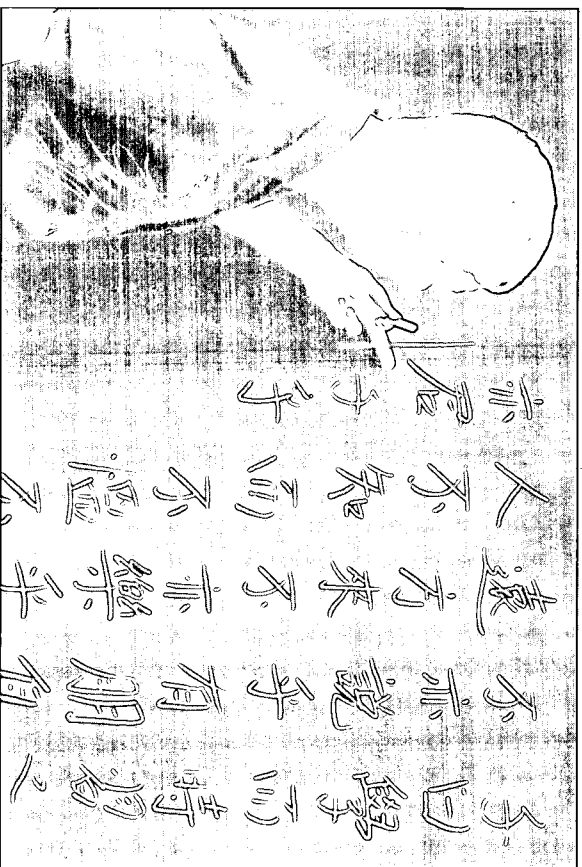 子曰學而時習之
不亦說乎有朋自
遠方來不亦樂乎
人不知而不慍不
亦君子乎